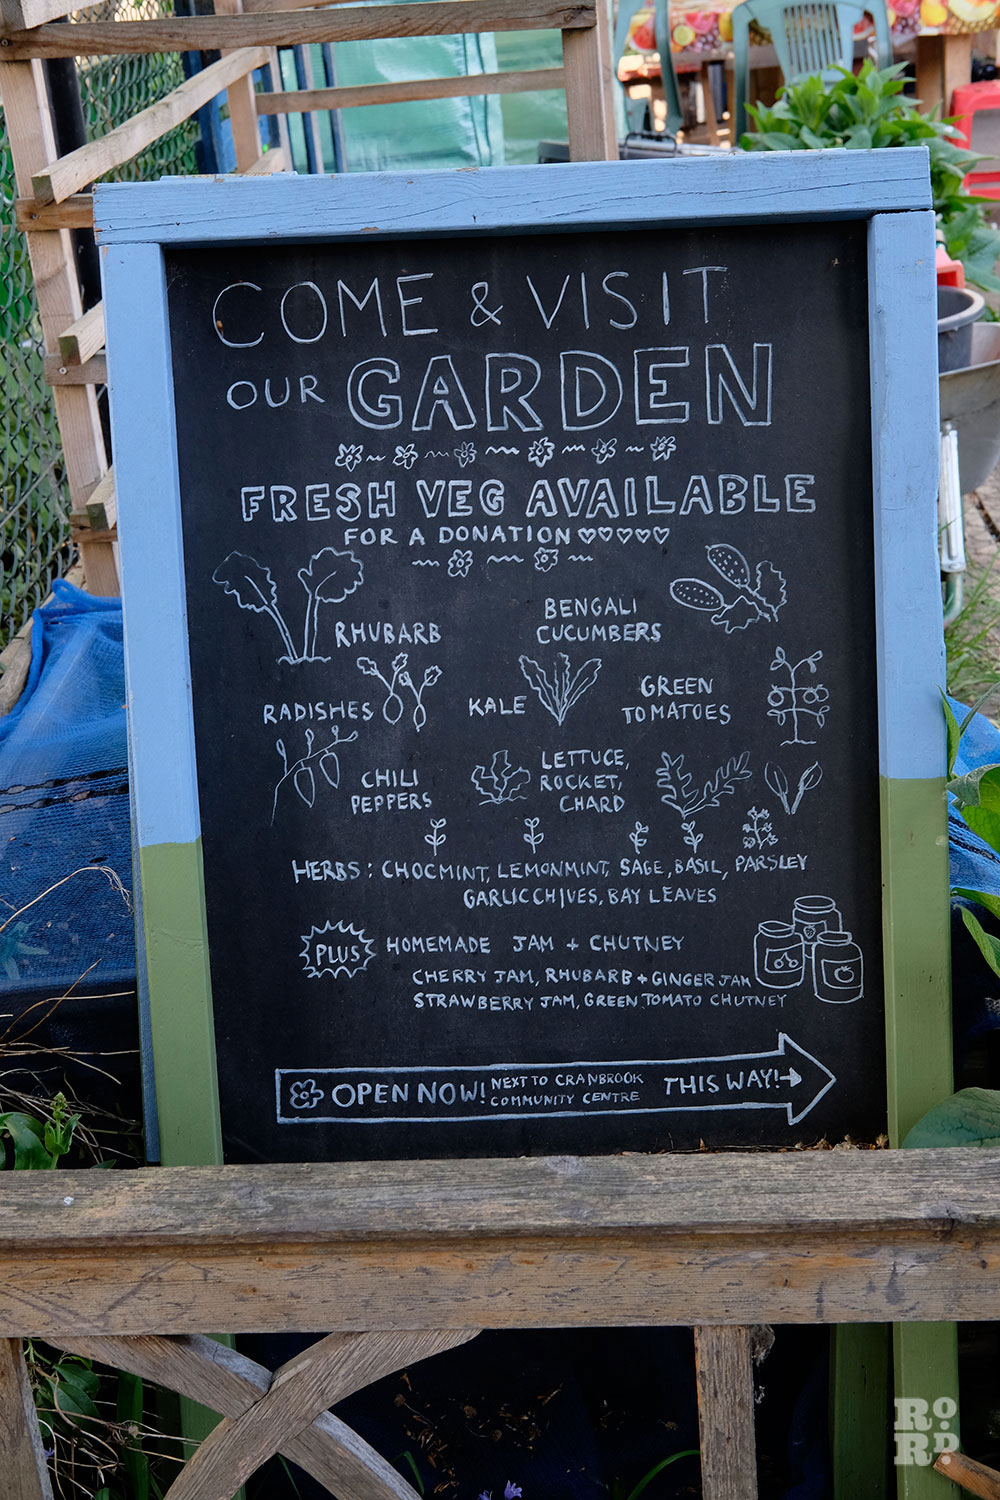 COME & VISIT
OUR GARDEN
FRESH VEG AVAILABLE
FOR A DONATION ♡♡♡♡♡
RHUBARB
BENGALI
CUCUMBERS
RADISHES
KALE
GREEN
TOMATOES
CHILI
PEPPERS
LETTUCE,
ROCKET,
CHARD
HERBS: CHOCMINT, LEMONMINT, SAGE, BASIL, PARSLEY
GARLIC CHIVES, BAY LEAVES
PLUS HOMEMADE JAM + CHUTNEY
CHERRY JAM, RHUBARB + GINGER JAM
STRAWBERRY JAM, GREEN TOMATO CHUTNEY
OPEN NOW! NEXT TO CRANBROOK
COMMUNITY CENTRE
THIS WAY!→
RO
RD